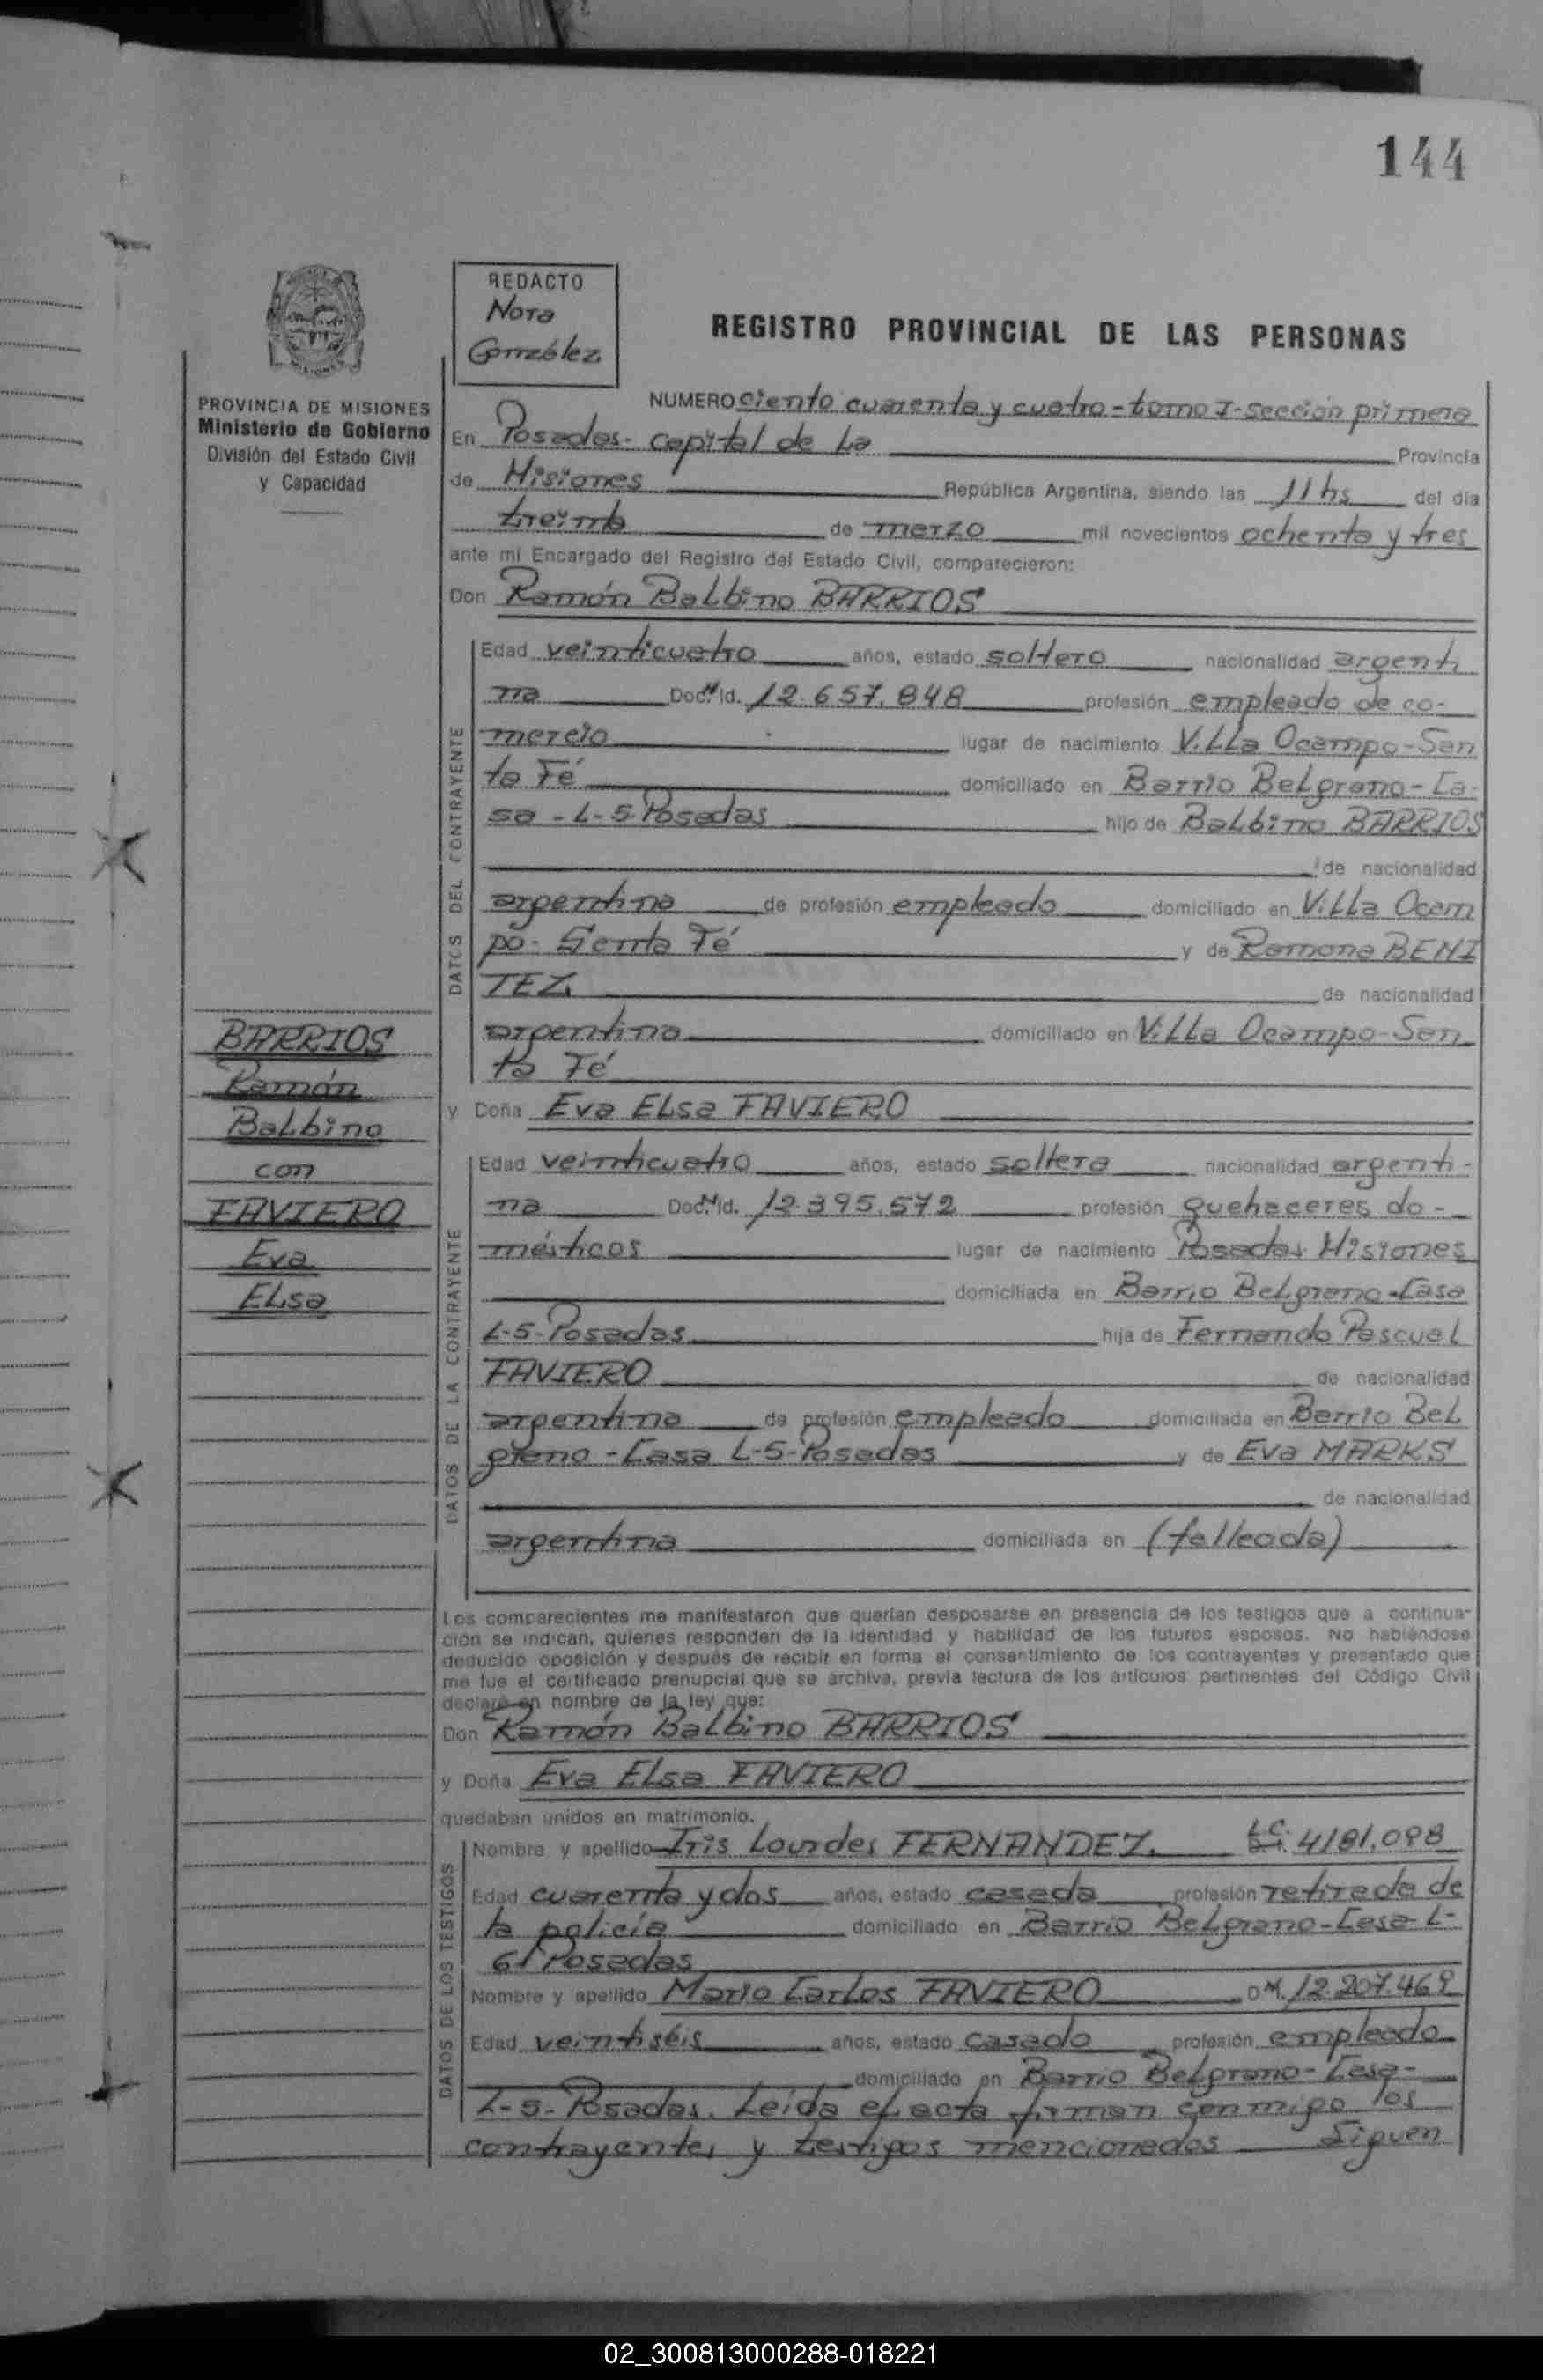 144
REDACTO
Nora
González.
REGISTRO PROVINCIAL DE LAS PERSONAS
PROVINCIA DE MISIONES
Ministerio de Gobierno
División del Estado Civil
y Capacidad
NUMERO ciento cuarenta y cuatro - tomo I - sección primera
En Posadas - capital de La Provincia
de Misiones República Argentina, siendo las 11 hs del día
treinta de marzo mil novecientos ochenta y tres
ante mi Encargado del Registro del Estado Civil, comparecieron:
Don Ramón Balbino BARRIOS
DATOS DEL CONTRAYENTE
Edad veinticuatro años, estado soltero nacionalidad argenti
na Doc. N. Id. 12.657.848 profesión empleado de co-
mercio lugar de nacimiento Villa Ocampo - San
ta Fé domiciliado en Barrio Belgrano - Ca-
sa - L-5 - Posadas hijo de Balbino BARRIOS
de nacionalidad
argentina de profesión empleado domiciliado en Villa Ocam
po - Santa Fé y de Ramona BENI
TEZ de nacionalidad
argentina domiciliado en Villa Ocampo - San
ta Fé
BARRIOS
Ramón
Balbino
con
FAVIERO
Eva
Elsa
y Doña Eva Elsa FAVIERO
DATOS DE LA CONTRAYENTE
Edad veinticuatro años, estado soltera nacionalidad argenti-
na Doc. N. Id. 12.395.572 profesión quehaceres do-
mésticos lugar de nacimiento Posadas Misiones
domiciliada en Barrio Belgrano - Casa
L-5 - Posadas hija de Fernando Pascual
FAVIERO de nacionalidad
argentina de profesión empleado domiciliada en Barrio Bel
grano - Casa L-5 - Posadas y de Eva MARKS
de nacionalidad
argentina domiciliada en (fallecida)
Los comparecientes me manifestaron que querían desposarse en presencia de los testigos que a continua-
ción se indican, quienes responden de la identidad y habilidad de los futuros esposos. No habiéndose
deducido oposición y después de recibir en forma el consentimiento de los contrayentes y presentado que
me fue el certificado prenupcial que se archiva, previa lectura de los artículos pertinentes del Código Civil
declaré en nombre de la ley que:
Don Ramón Balbino BARRIOS
y Doña Eva Elsa FAVIERO
quedaban unidos en matrimonio.
DATOS DE LOS TESTIGOS
Nombre y apellido Iris Lourdes FERNANDEZ. L.C. 4181.098
Edad cuarenta y dos años, estado casada profesión retirada de
la policía domiciliado en Barrio Belgrano - Casa L-
6 - Posadas
Nombre y apellido Mario Carlos FAVIERO D.N.I. 12.207.469
Edad veintiséis años, estado casado profesión empleado
domiciliado en Barrio Belgrano - Casa -
L-5 - Posadas. Leída el acta firman conmigo los
contrayentes y testigos mencionados Siguen
02_300813000288-018221